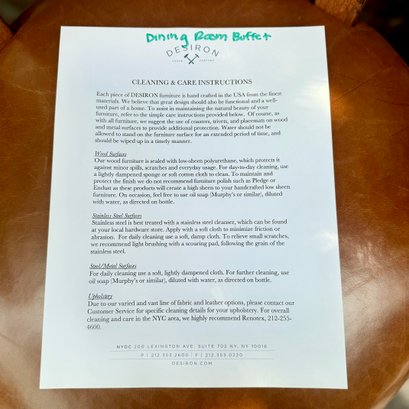 Dining Room Buffet
DESIRON
CLEANING & CARE INSTRUCTIONS
Each piece of DESIRON furniture is hand crafted in the USA from the finest
materials. We believe that great design should also be functional and a well-
used part of a home. To assist in maintaining the natural beauty of your
furniture, refer to the simple care instructions provided below. Of course, as
with all furniture, we suggest the use of coasters, trivets, and placemats on wood
and metal surfaces to provide additional protection. Water should not be
allowed to stand on the furniture surface for an extended period of time, and
should be wiped up in a timely manner.
Wood Surfaces
Our wood furniture is sealed with low-sheen polyurethane, which protects it
against minor spills, scratches and everyday usage. For day-to-day cleaning, use
a lightly dampened sponge or soft cotton cloth to clean. To maintain and
protect the finish we do not recommend furniture polish such as Pledge or
Endust as these products will create a high sheen to your handcrafted low sheen
furniture. On occasion, feel free to use oil soap (Murphy's or similar), diluted
with water, as directed on bottle.
Stainless Steel Surfaces
Stainless steel is best treated with a stainless steel cleanser, which can be found
at your local hardware store. Apply with a soft cloth to minimize friction or
abrasion. For daily cleaning use a soft, damp cloth. To relieve small scratches,
we recommend light brushing with a scouring pad, following the grain of the
stainless steel.
Steel/Metal Surfaces
For daily cleaning use a soft, lightly dampened cloth. For further cleaning, use
oil soap (Murphy's or similar), diluted with water, as directed on bottle.
Upholstery
Due to our varied and vast line of fabric and leather options, please contact our
Customer Service for specific cleaning details for your upholstery. For overall
cleaning and care in the NYC area, we highly recommend Renotex, 212-255-
4600.
NYDC 200 LEXINGTON AVE. SUITE 702 NY, NY 10016
P | 212.353.2600 | F | 212.353.0220
DESIRON.COM